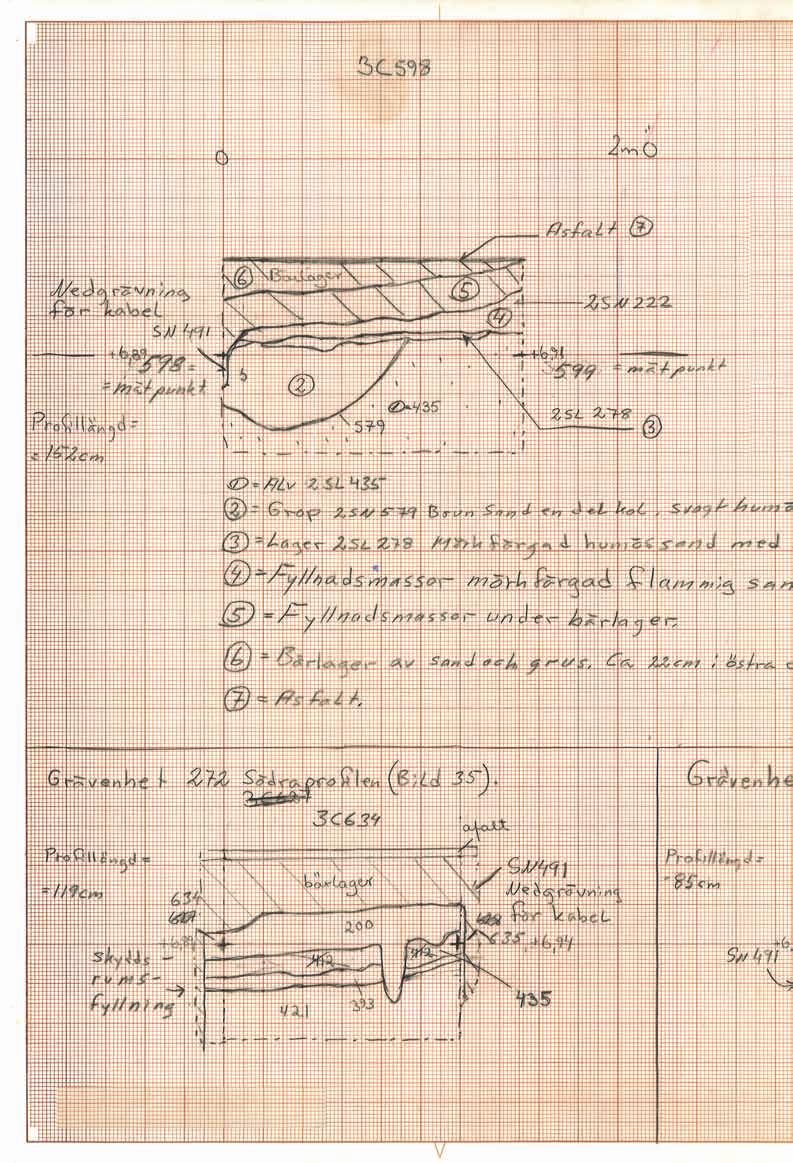 3C598
0
2mÖ
Asfalt 7
6 Bärlager
5
Nedgrävning
för kabel
2SN222
4
SN 491
+6,89 598 =
= mätpunkt
+6,91
599 = mätpunkt
2
1 435
579
2SL 278 3
Profillängd =
= 152cm
1 = Alv 2SL435
2 = Grop 2SN579 Brun Sand en del kol, svagt
3 = Lager 2SL278 Mörkfärgad humös sand med
4 = Fyllnadsmassor mörkfärgad flammig
5 = Fyllnadsmassor under bärlager.
6 = Bärlager av sand och grus. Ca 22cm i östra
7 = Asfalt.
Grävenhet 272 Södraprofilen (Bild 35).
3C634
afalt
Profillängd =
= 119cm
bärlager
SN491
Nedgrävning
för kabel
634
200
635 +6,94
skydds-
rums-
fyllning
412
412
393
421
435
Grävenhe
Profillängd =
85cm
SN 491